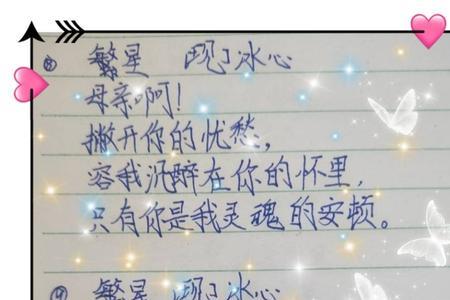 ⑧ 繁星 [现]冰心
母亲啊!
撇开你的忧愁,
容我沉酣在你的怀里,
只有你是我灵魂的安顿。
⑨ 繁星 [现]冰心